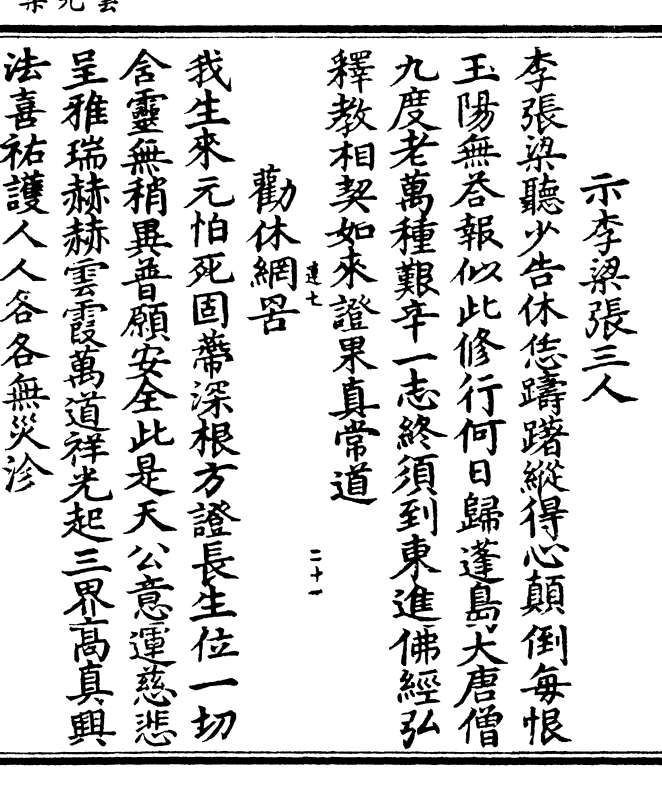 示李梁張三人
李張梁聽少告休恁躊躇縱得心顛倒每恨
玉陽無荅報似此修行何日歸蓬島大唐僧
九度老萬種艱辛一志終須到東進佛經弘
釋教相契如來證果真常道
勸休網罟
我生來元怕死固蔕深根方證長生位一切
含靈無稍異普願安全此是天公意運慈悲
呈雅瑞赫赫雲霞萬道祥光起三界高真興
法喜祐護人人各各無災沴
二十一